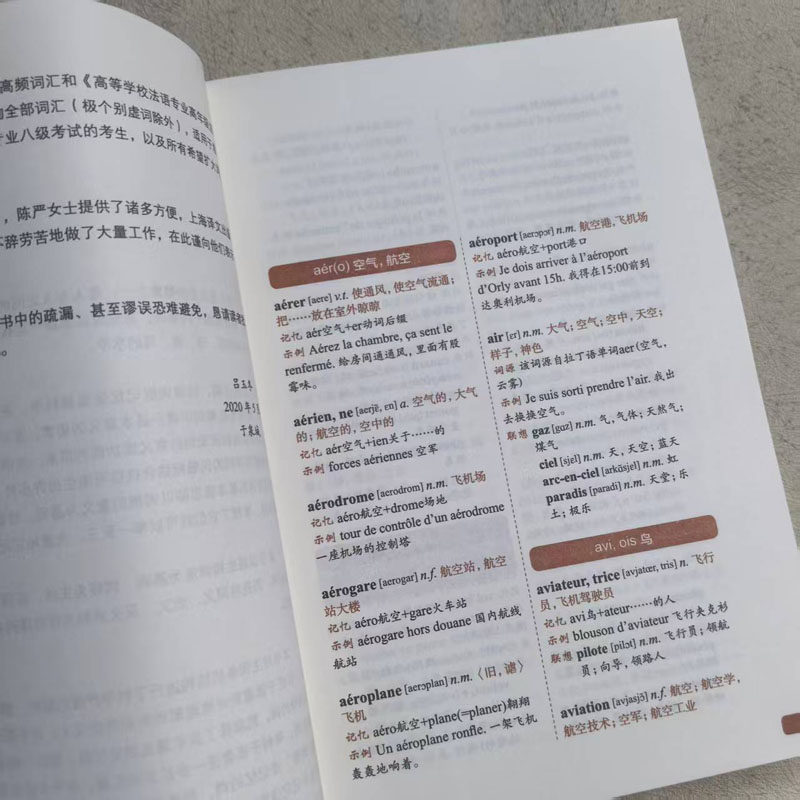 高频词汇和《高等学校法语专业高年级
全部词汇（极个别虚词除外），适用于
专业八级考试的考生，以及所有希望扩大
，陈严女士提供了诸多方便，上海译文出版
不辞劳苦地做了大量工作，在此谨向他们表示
书中的疏漏、甚至谬误恐难避免，恳请读者
。
2020年5月
aér(o) 空气，航空
aérer [aere] v.t. 使通风，使空气流通；
把……放在室外晾晾
记忆 aér空气+er动词后缀
示例 Aérez la chambre, ça sent le
renfermé. 给房间通通风，里面有股
霉味。
aérien, ne [aerjɛ̃, ɛn] a. 空气的，大气
的；航空的，空中的
记忆 aér空气+ien关于……的
示例 forces aériennes 空军
aérodrome [aerodrom] n.m. 飞机场
记忆 aéro航空+drome场地
示例 tour de contrôle d'un aérodrome
一座机场的控制塔
aérogare [aerogar] n.f. 航空站，航空
站大楼
记忆 aéro航空+gare火车站
示例 aérogare hors douane 国内航线
航站
aéroplane [aerɔplan] n.m.〈旧，谑〉
飞机
记忆 aéro航空+plane(=planer)翱翔
示例 Un aéroplane ronfle. 一架飞机
轰轰地响着。
aéroport [aerɔpɔr] n.m. 航空港，飞机场
记忆 aéro航空+port港口
示例 Je dois arriver à l'aéroport
d'Orly avant 15h. 我得在15:00前到
达奥利机场。
air [ɛr] n.m. 大气；空气；空中，天空；
样子，神色
词源 该词源自拉丁语单词aer (空气，
云雾)
示例 Je suis sorti prendre l'air. 我出
去换换空气。
联想 gaz [gɑz] n.m. 气，气体；天然气；
煤气
ciel [sjɛl] n.m. 天，天空；蓝天
arc-en-ciel [arkɑ̃sjɛl] n.m. 虹
paradis [paradi] n.m. 天堂；乐
土；极乐
avi, ois 鸟
aviateur, trice [avjatœr, tris] n. 飞行
员，飞机驾驶员
记忆 avi鸟+ateur……的人
示例 blouson d'aviateur 飞行夹克衫
联想 pilote [pilɔt] n.m. 飞行员；领航
员；向导，领路人
aviation [avjasjɔ̃] n.f. 航空；航空学，
航空技术；空军；航空工业